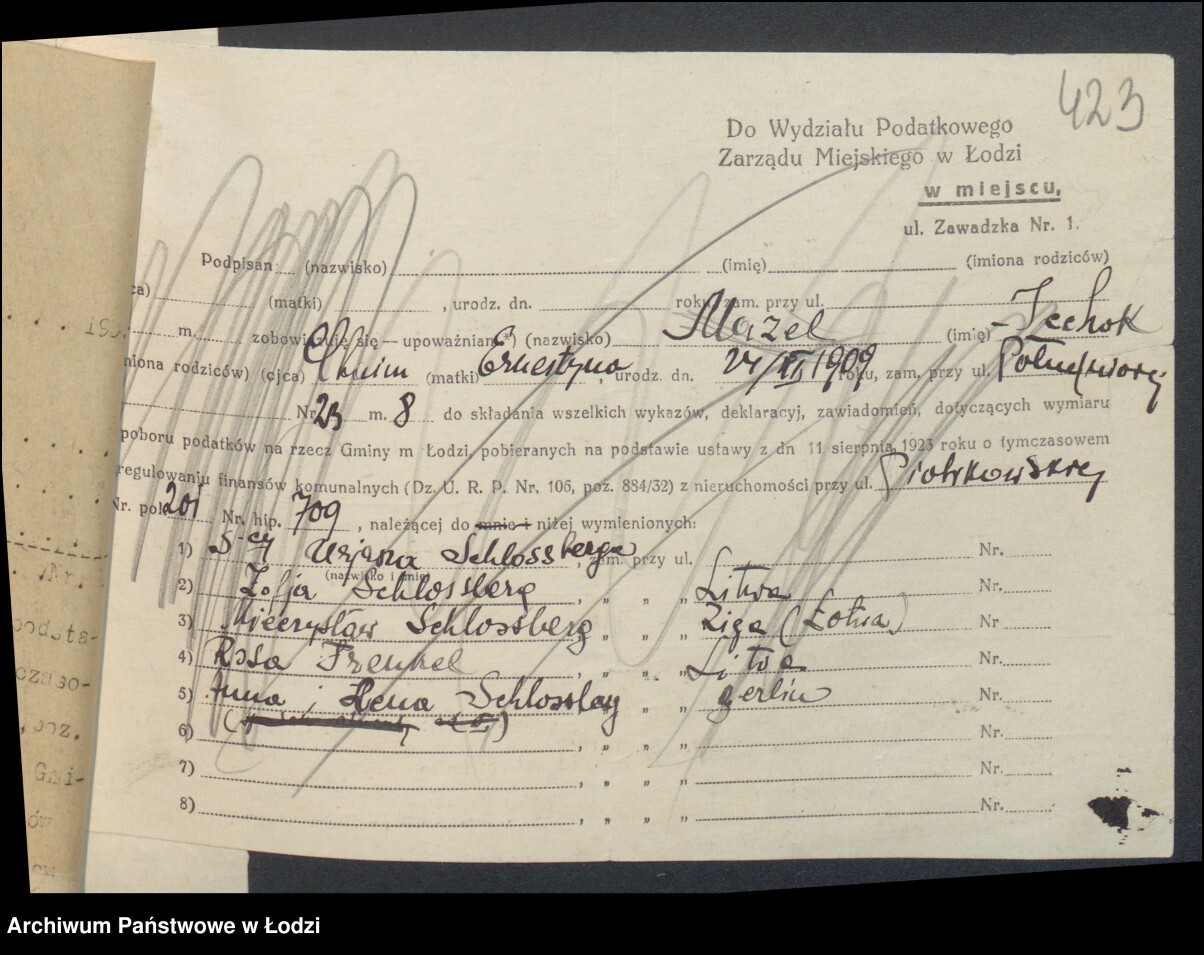 423
Do Wydziału Podatkowego
Zarządu Miejskiego w Łodzi
w miejscu,
ul. Zawadzka Nr. 1.
Podpisan (nazwisko) (imię) (imiona rodziców)
ca) (matki) , urodz. dn. roku, zam. przy ul.
m. zobowiązuję się — upoważniam*) (nazwisko) Mazel (imię) Icchok
niona rodziców) (ojca) Chaim (matki) Ernestyna, urodz. dn. 24/XI 1909 roku, zam. przy ul. Południowej
Nr 23 m. 8 do składania wszelkich wykazów, deklaracyj, zawiadomień, dotyczących wymiaru
poboru podatków na rzecz Gminy m Łodzi, pobieranych na podstawie ustawy z dn 11 sierpnia 1923 roku o tymczasowem
regulowaniu finansów komunalnych (Dz. U. R. P. Nr. 106, poz. 884/32) z nieruchomości przy ul. Piotrkowskiej
Nr. pol. 201 Nr. hip. 709, należącej do mnie i niżej wymienionych:
1) S-cy Schlossberga zam. przy ul. Nr.
(nazwisko i imię)
2) Zofja Schlossberg , „ „ „ Litwa Nr.
3) Mieczysław Schlossberg „ „ „ Ryga (Łotwa) Nr
4) Rosa Frenkel , „ „ „ Litwa Nr.
5) Anna i Hena Schlossberg „ „ Berlin Nr.
6) , „ „ „ Nr.
7) , „ „ „ Nr.
8) , „ „ „ Nr.
Nr.
czaso-
poz.
Gmi-
ów
Archiwum Państwowe w Łodzi